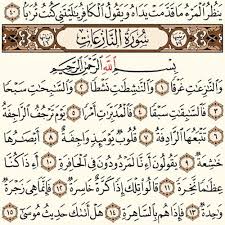 يَنظُرُ ٱلْمَرْءُ مَا قَدَّمَتْ يَدَاهُ وَيَقُولُ ٱلْكَافِرُ يَٰلَيْتَنِى كُنتُ تُرَٰبًۢا
سُورَةُ النَّازِعَاتِ
بِسْمِ ٱللَّهِ ٱلرَّحْمَٰنِ ٱلرَّحِيمِ
وَٱلنَّٰزِعَٰتِ غَرْقًا ١ وَٱلنَّٰشِطَٰتِ نَشْطًا ٢ وَٱلسَّٰبِحَٰتِ سَبْحًا
٣ فَٱلسَّٰبِقَٰتِ سَبْقًا ٤ فَٱلْمُدَبِّرَٰتِ أَمْرًا ٥ يَوْمَ تَرْجُفُ ٱلرَّاجِفَةُ
٦ تَتْبَعُهَا ٱلرَّادِفَةُ ٧ قُلُوبٌ يَوْمَئِذٍ وَاجِفَةٌ ٨ أَبْصَٰرُهَا
خَٰشِعَةٌ ٩ يَقُولُونَ أَءِنَّا لَمَرْدُودُونَ فِى ٱلْحَافِرَةِ ١٠ أَءِذَا كُنَّا
عِظَٰمًا نَّخِرَةً ١١ قَالُوا۟ تِلْكَ إِذًا كَرَّةٌ خَاسِرَةٌ ١٢ فَإِنَّمَا هِىَ زَجْرَةٌ
وَٰحِدَةٌ ١٣ فَإِذَا هُم بِٱلسَّاهِرَةِ ١٤ هَلْ أَتَىٰكَ حَدِيثُ مُوسَىٰٓ ١٥